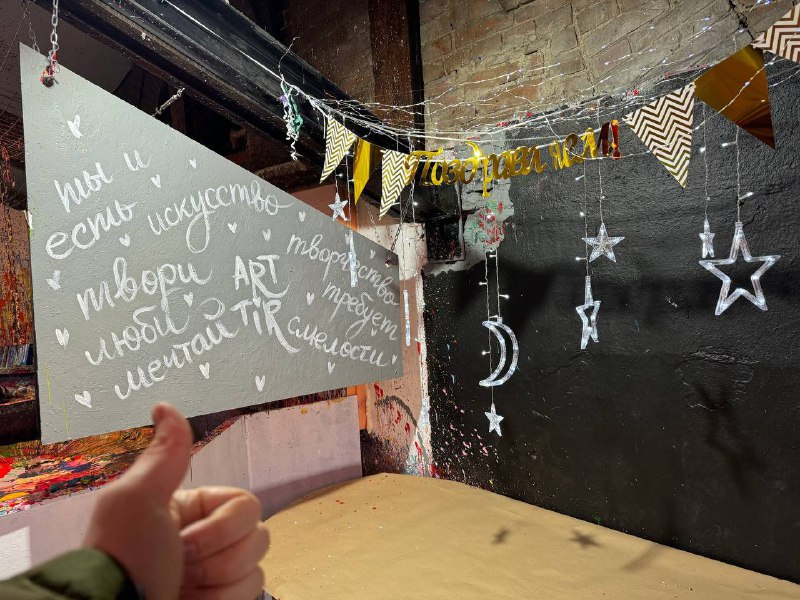 ты и
есть искусство
твори ART
люби TIR
мечтай
творчество
требует
смелости
Поздравляем!